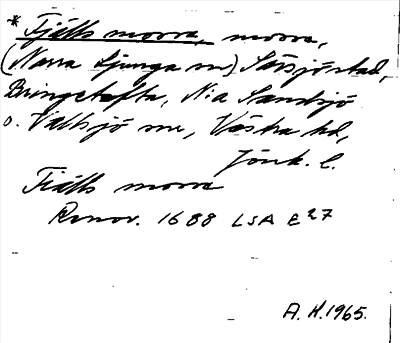 * Fjälls morra, morra,
(Norra Ljunga sn) Sävsjö stad,
Bringetofta, N:a Sandsjö
o. Vallsjö snr, Västra hd,
Jönk. l.
Fiälls morra
Renov. 1688 LSA E27
A. H. 1965.